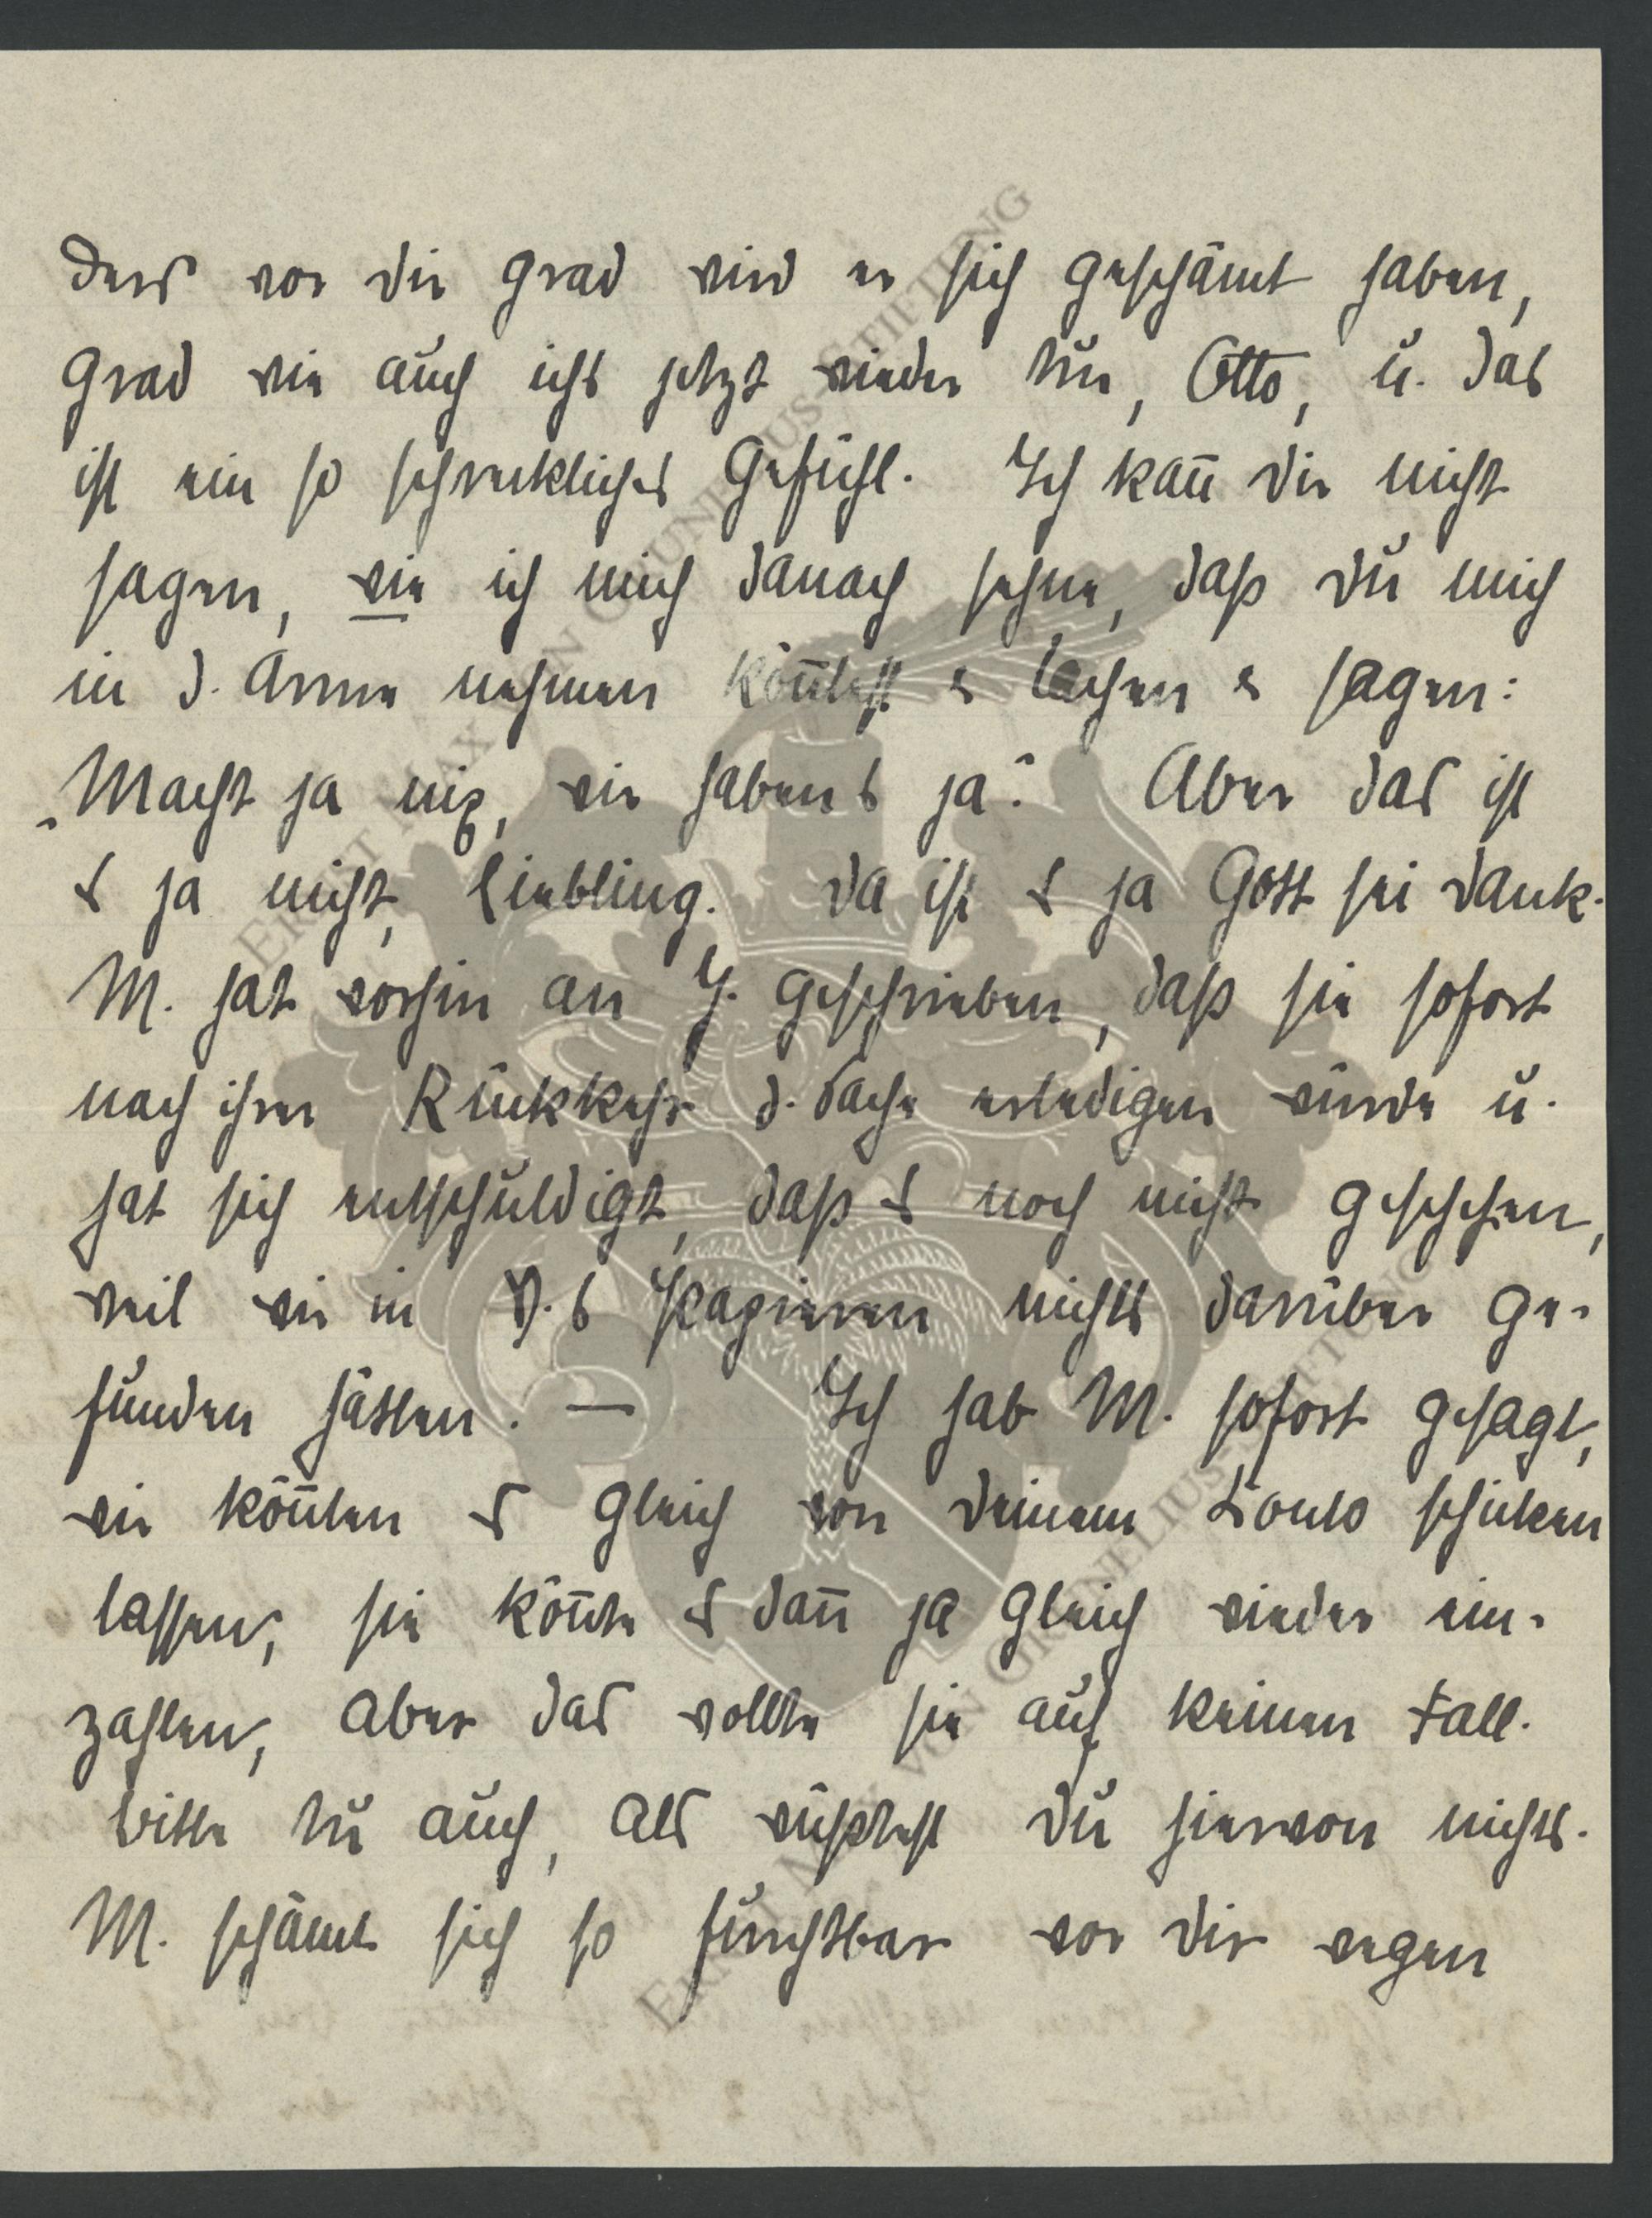 denn vor dir grad wird er sich geschämt haben,
grad wie auch ichs jetzt wieder tu, Otto, u. das
ist ein so schreckliches Gefühl. Ich kan̄ dir nicht
sagen, wie ich mich danach sehne, daß du mich
in d. Arme nehmen kön̄test & lachen & sagen:
„Macht ja nix, wir haben's ja." Aber das ist
es ja nicht, Liebling. Da ist es ja Gott sei dank.
M. hat vorhin an Y. geschrieben, daß sie sofort
nach ihrer Rückkehr d. Sache erledigen würde u.
hat sich entschuldigt, daß es noch nicht geschehen,
weil wir in V.s Papieren nichts darüber ge-
funden hätten. — Ich hab M. sofort gesagt,
wir kön̄ten es gleich von deinem Konto schicken
lassen, sie kön̄te es dan̄ ja gleich wieder ein-
zahlen, aber das wollte sie auf keinen Fall.
bitte tu auch, als wüßtest du hiervon nichts.
M. schämt sich so furchtbar vor dir wegen
ERNST MAX VON GRUNELIUS-STIFTUNG
ERNST MAX VON GRUNELIUS-STIFTUNG